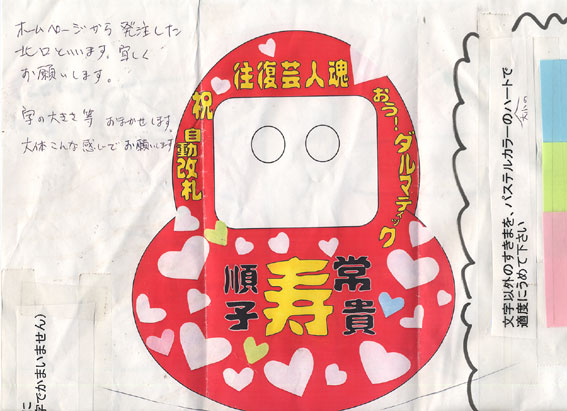 ホームページから発注した
北口といいます。宜しく
お願いします。
字の大きさ等 おまかせします。
大体こんな感じでお願いします
往復芸人魂
祝
自動改札
おう!ダルマティック
常貴
寿
順子
文字以外のすきまを、パステルカラーのハートで
適度にうめて下さい
字でかまいません)